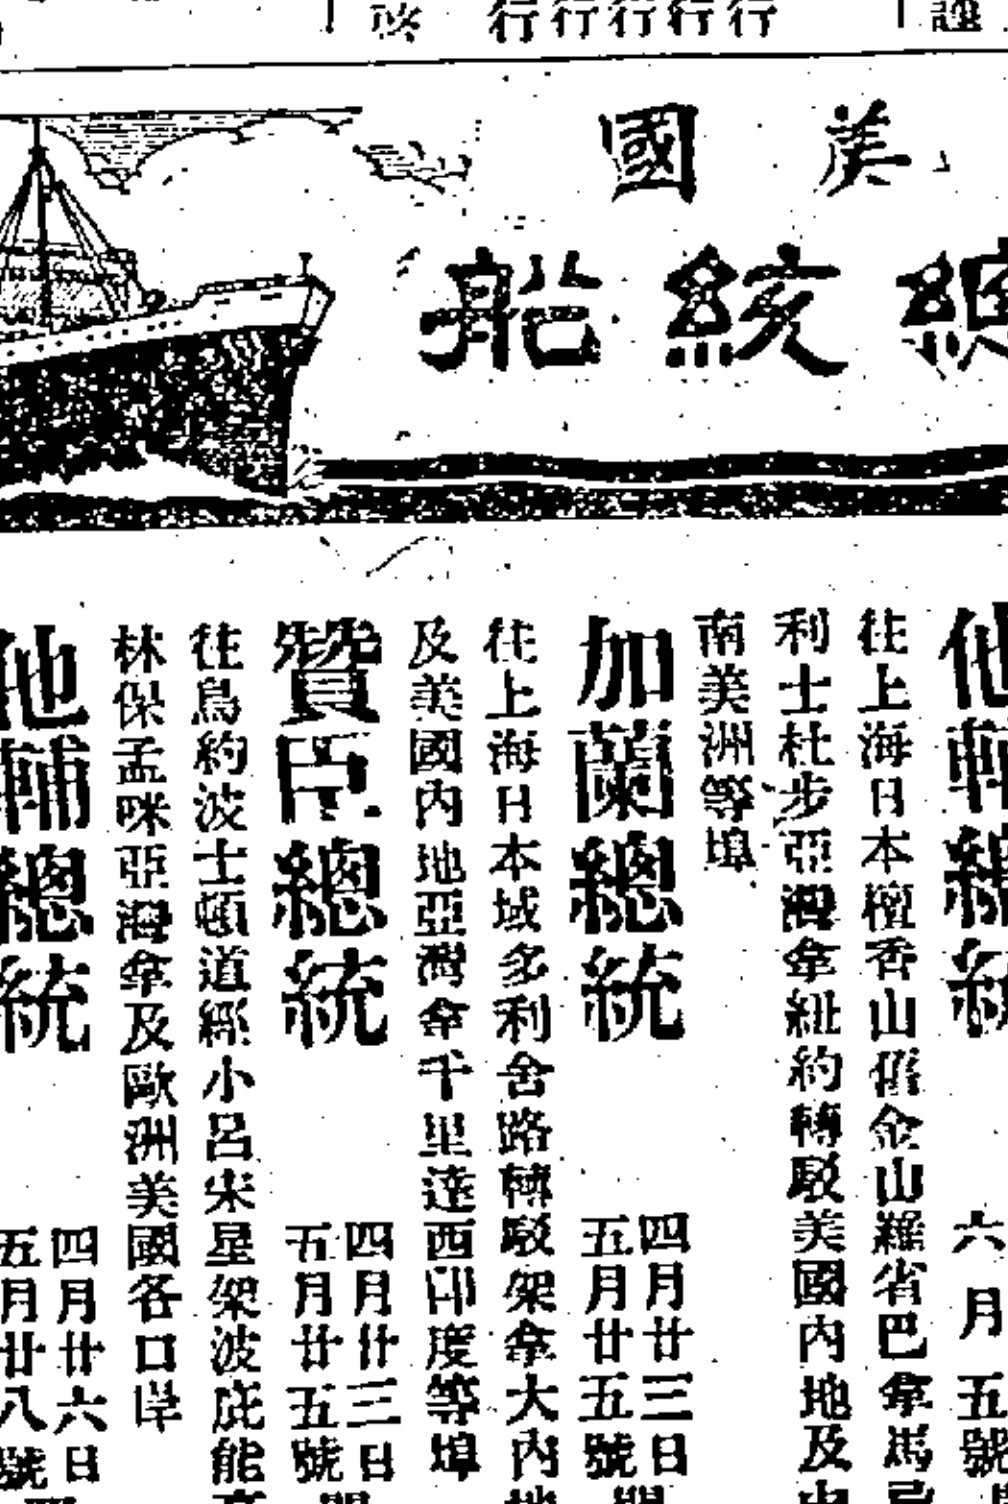 行行行行行
啓
美國
總統船
他輔總統
六月五號
往上海日本檀香山舊金山羅省巴拿馬
利士杜步亞灣拿紐約轉駁美國內地及
南美洲等埠
加蘭總統
四月廿三日
五月廿五號
往上海日本域多利舍路轉駁架拿大內地
及美國內地亞灣拿千里達西印度等埠
贊臣總統
四月廿三日
五月廿五號
往鳥約波士頓道經小呂宋星架波庇能
林保孟咪亞灣拿及歐洲美國各口岸
他輔總統
四月廿六日
五月廿八號